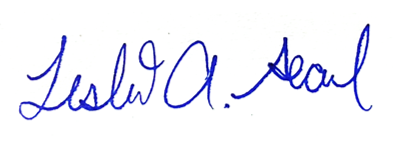 Leslie A. Searl